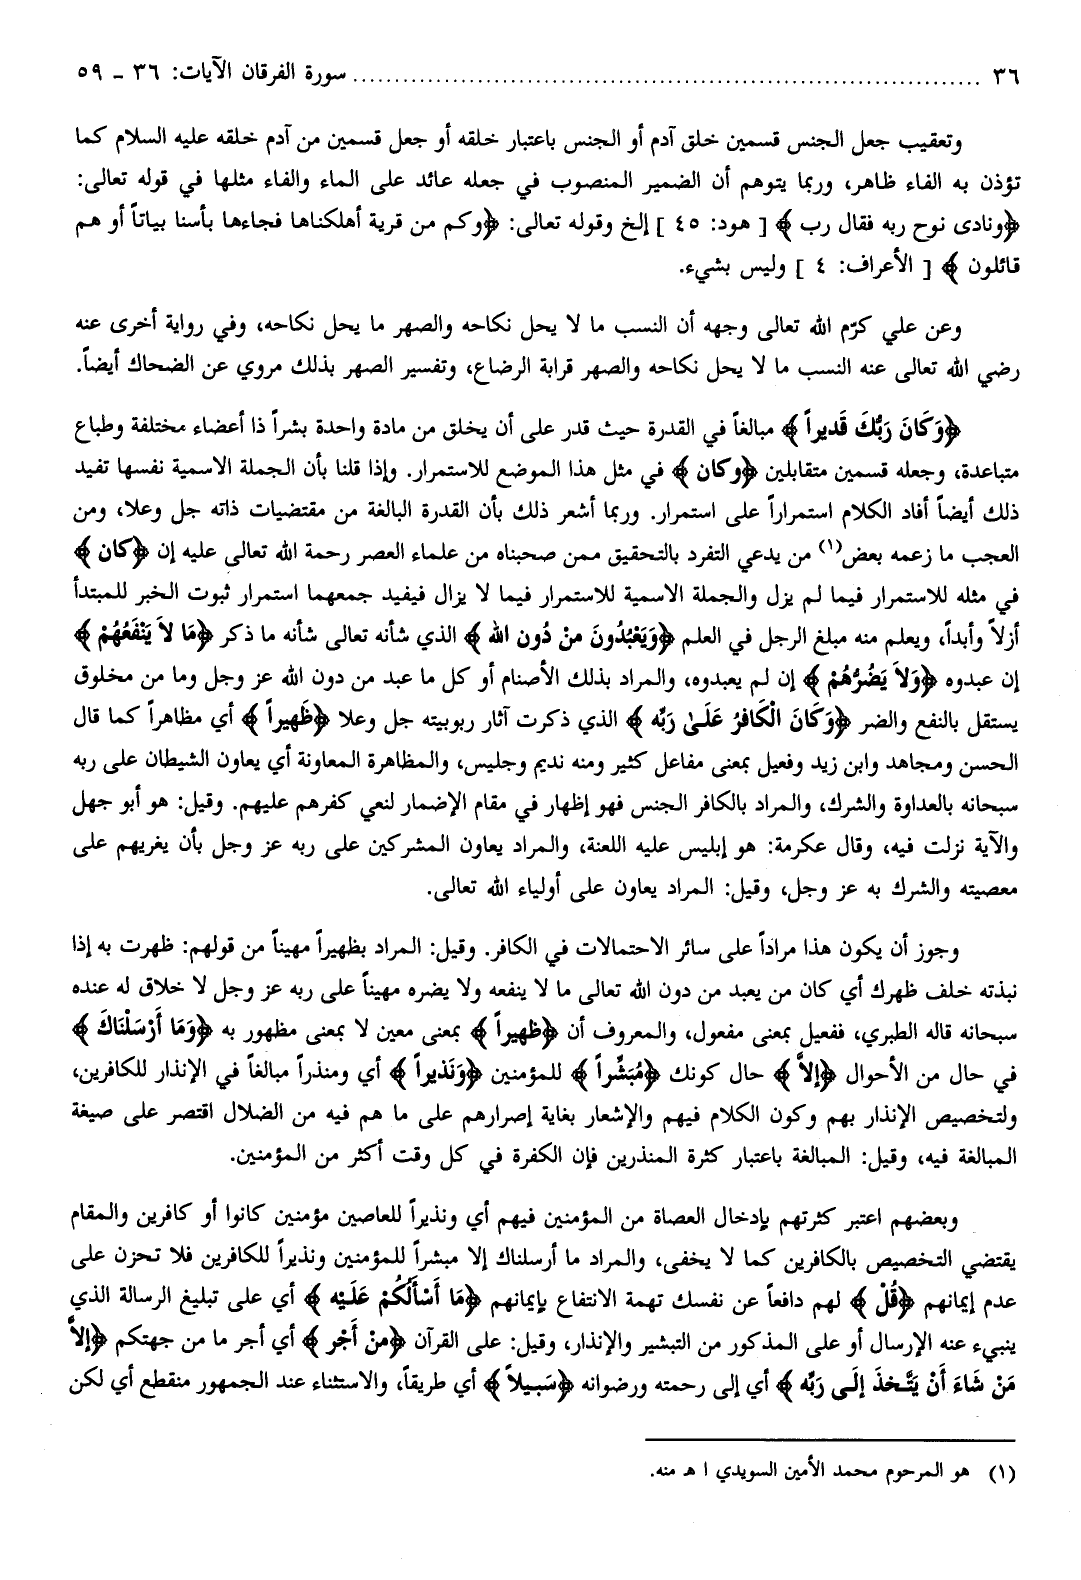 ٣٦ ........ سورة الفرقان الآيات: ٣٦ - ٥٩
وتعقيب جعل الجنس قسمين خلق آدم أو الجنس باعتبار خلقه أو جعل قسمين من آدم خلقه عليه السلام كما
تؤذن به الفاء ظاهر، وربما يتوهم أن الضمير المنصوب في جعله عائد على الماء والفاء مثلها في قوله تعالى:
﴿ونادى نوح ربه فقال رب﴾ [ هود: ٤٥ ] إلخ وقوله تعالى: ﴿وكم من قرية أهلكناها فجاءها بأسنا بياتاً أو هم
قائلون﴾ [ الأعراف: ٤ ] وليس بشيء.
وعن علي كرّم الله تعالى وجهه أن النسب ما لا يحل نكاحه والصهر ما يحل نكاحه، وفي رواية أخرى عنه
رضي الله تعالى عنه النسب ما لا يحل نكاحه والصهر قرابة الرضاع، وتفسير الصهر بذلك مروي عن الضحاك أيضاً.
﴿وَكَانَ رَبُّكَ قَديراً﴾ مبالغاً في القدرة حيث قدر على أن يخلق من مادة واحدة بشراً ذا أعضاء مختلفة وطباع
متباعدة، وجعله قسمين متقابلين ﴿وكان﴾ في مثل هذا الموضع للاستمرار. وإذا قلنا بأن الجملة الاسمية نفسها تفيد
ذلك أيضاً أفاد الكلام استمراراً على استمرار. وربما أشعر ذلك بأن القدرة البالغة من مقتضيات ذاته جل وعلا، ومن
العجب ما زعمه بعض(١) من يدعي التفرد بالتحقيق ممن صحبناه من علماء العصر رحمة الله تعالى عليه إن ﴿كان﴾
في مثله للاستمرار فيما لم يزل والجملة الاسمية للاستمرار فيما لا يزال فيفيد جمعهما استمرار ثبوت الخبر للمبتدأ
أزلاً وأبداً، ويعلم منه مبلغ الرجل في العلم ﴿وَيَعْبُدُونَ منْ دُون الله﴾ الذي شأنه تعالى شأنه ما ذكر ﴿مَا لاَ يَنْفَعُهُمْ﴾
إن عبدوه ﴿وَلاَ يَضُرُّهُمْ﴾ إن لم يعبدوه، والمراد بذلك الأصنام أو كل ما عبد من دون الله عز وجل وما من مخلوق
يستقل بالنفع والضر ﴿وَكَانَ الْكَافرُ عَلَىٰ رَبِّه﴾ الذي ذكرت آثار ربوبيته جل وعلا ﴿ظَهيراً﴾ أي مظاهراً كما قال
الحسن ومجاهد وابن زيد وفعيل بمعنى مفاعل كثير ومنه نديم وجليس، والمظاهرة المعاونة أي يعاون الشيطان على ربه
سبحانه بالعداوة والشرك، والمراد بالكافر الجنس فهو إظهار في مقام الإضمار لنعي كفرهم عليهم. وقيل: هو أبو جهل
والآية نزلت فيه، وقال عكرمة: هو إبليس عليه اللعنة، والمراد يعاون المشركين على ربه عز وجل بأن يغريهم على
معصيته والشرك به عز وجل، وقيل: المراد يعاون على أولياء الله تعالى.
وجوز أن يكون هذا مراداً على سائر الاحتمالات في الكافر. وقيل: المراد بظهيراً مهيناً من قولهم: ظهرت به إذا
نبذته خلف ظهرك أي كان من يعبد من دون الله تعالى ما لا ينفعه ولا يضره مهيناً على ربه عز وجل لا خلاق له عنده
سبحانه قاله الطبري، ففعيل بمعنى مفعول، والمعروف أن ﴿ظهيراً﴾ بمعنى معين لا بمعنى مظهور به ﴿وَمَا أَرْسَلْنَاكَ﴾
في حال من الأحوال ﴿إلاَّ﴾ حال كونك ﴿مُبَشِّراً﴾ للمؤمنين ﴿وَنَذيراً﴾ أي ومنذراً مبالغاً في الإنذار للكافرين،
ولتخصيص الإنذار بهم وكون الكلام فيهم والإشعار بغاية إصرارهم على ما هم فيه من الضلال اقتصر على صيغة
المبالغة فيه، وقيل: المبالغة باعتبار كثرة المنذرين فإن الكفرة في كل وقت أكثر من المؤمنين.
وبعضهم اعتبر كثرتهم بإدخال العصاة من المؤمنين فيهم أي ونذيراً للعاصين مؤمنين كانوا أو كافرين والمقام
يقتضي التخصيص بالكافرين كما لا يخفى، والمراد ما أرسلناك إلا مبشراً للمؤمنين ونذيراً للكافرين فلا تحزن على
عدم إيمانهم ﴿قُلْ﴾ لهم دافعاً عن نفسك تهمة الانتفاع بإيمانهم ﴿مَا أَسْأَلُكُمْ عَلَيْه﴾ أي على تبليغ الرسالة الذي
ينبيء عنه الإرسال أو على المذكور من التبشير والإنذار، وقيل: على القرآن ﴿منْ أَجْر﴾ أي أجر ما من جهتكم ﴿إلاَّ
مَنْ شَاءَ أَنْ يَتَّخذَ إلَى رَبِّه﴾ أي إلى رحمته ورضوانه ﴿سَبيلاً﴾ أي طريقاً، والاستثناء عند الجمهور منقطع أي لكن
(١) هو المرحوم محمد الأمين السويدي ا هـ منه.